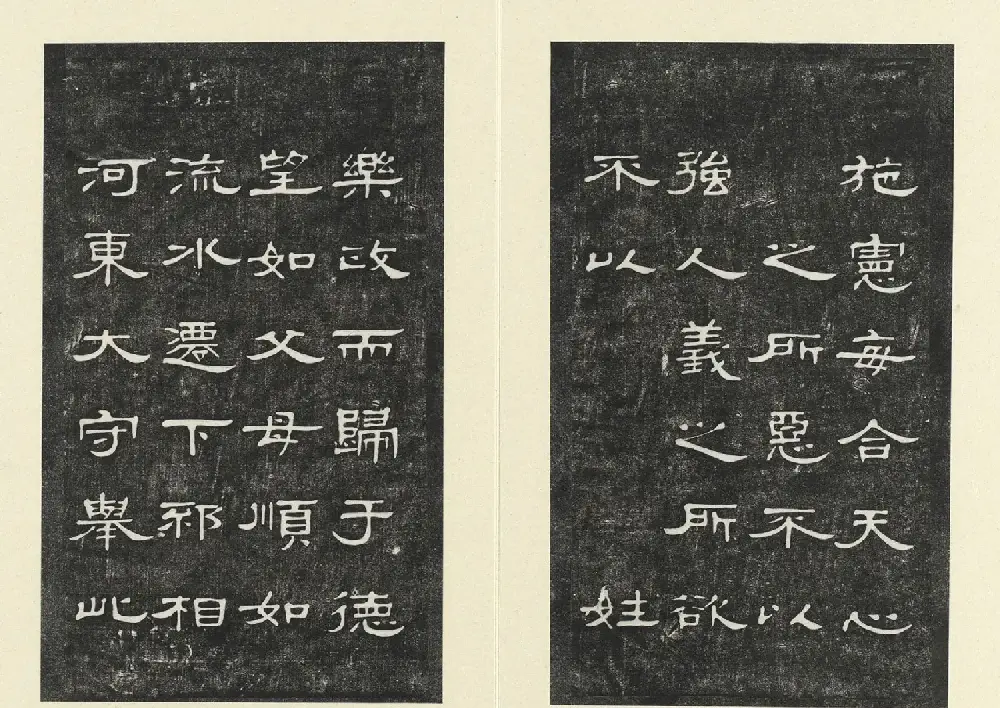 施憲每合天心
之所惡不以
強人義之所欲
不以姓
樂政而歸于德
望如父母順如
流水遷下邳相
河東大守舉此